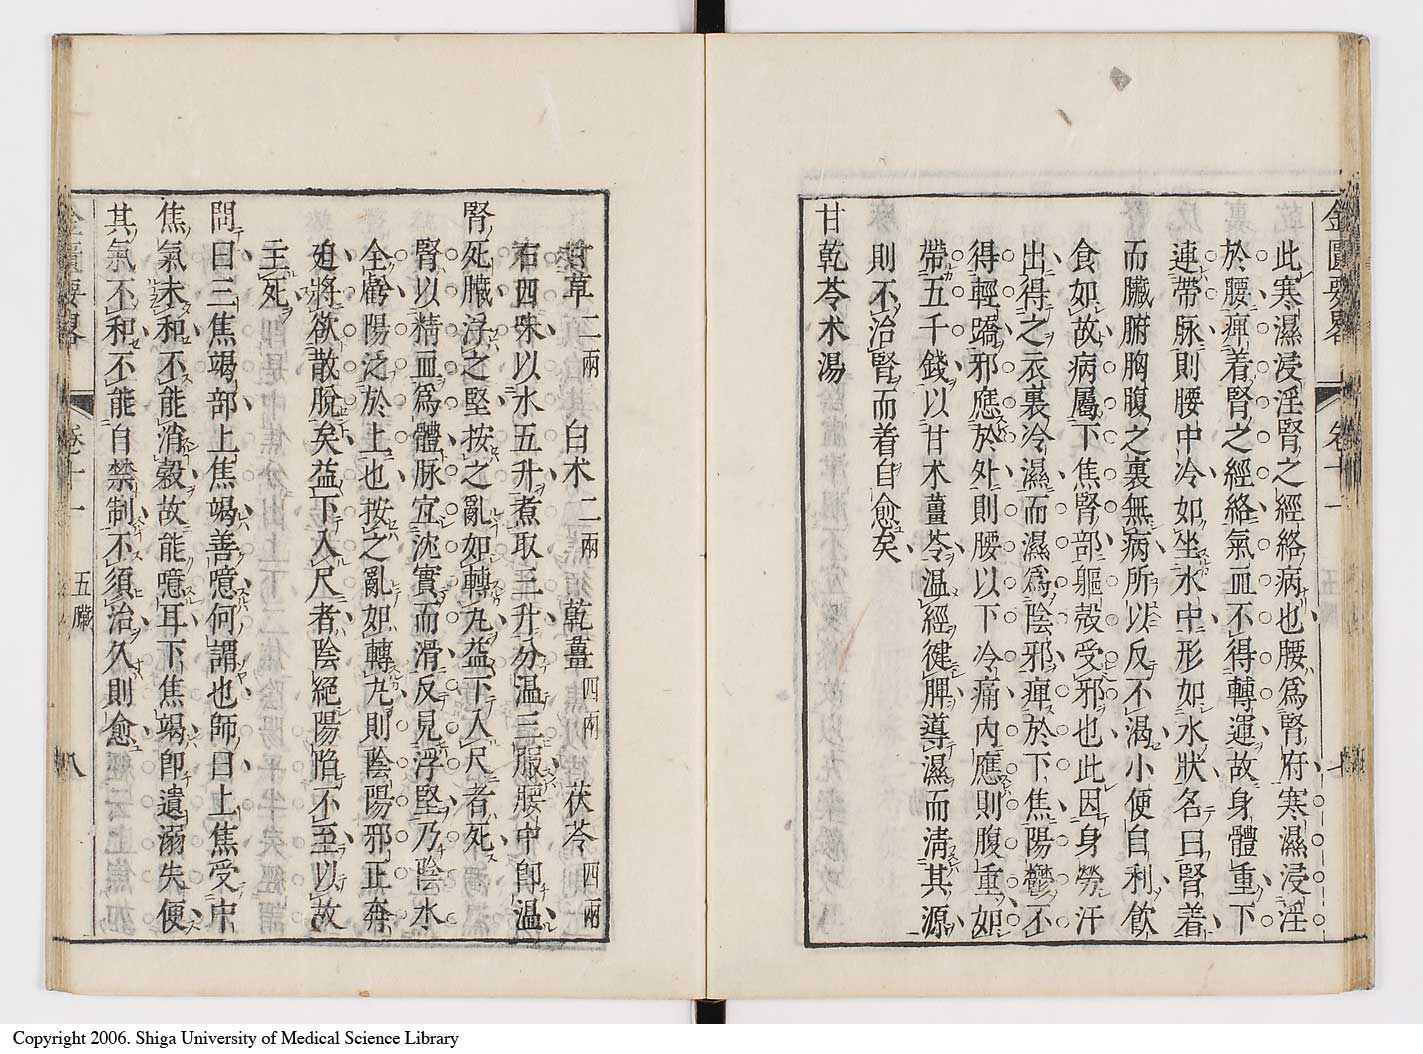 金匱要畧 卷十一
此寒濕浸淫腎之經絡病也腰爲腎府寒濕浸淫
於腰痺着腎之經絡氣血不得轉運故身體重下
連帶脉則腰中冷如坐水中形如水狀名曰腎着
而臓腑胸腹之裏無病所以反不渴小便自利飲
食如故病屬下焦腎部軀殼受邪也此因身勞汗
出得之衣裏冷濕而濕爲陰邪痺於下焦陽鬱不
得輕蹻邪應於外則腰以下冷痛內應則腹重如
帶五千錢以甘朮薑苓溫經健脾導濕而淸其源
則不治腎而着自愈矣
甘乾苓朮湯
甘草二兩 白朮二兩 乾薑四兩 茯苓四兩
右四味以水五升煮取三升分溫三服腰中卽溫
腎死臓浮之堅按之亂如轉丸益下入尺者死
腎以精血爲體脉宜沈實而滑反見浮堅乃陰水
全虧陽泛於上也按之亂如轉丸則陰陽邪正奔
迫將欲散脫矣益下入尺者陰絕陽陷不至以故
主死
問曰三焦竭部上焦竭善噫何謂也師曰上焦受中
焦氣未和不能消穀故能噫耳下焦竭卽遺溺失便
其氣不和不能自禁制不須治久則愈
金匱要畧 卷十一 五臓 八
Copyright 2006. Shiga University of Medical Science Library